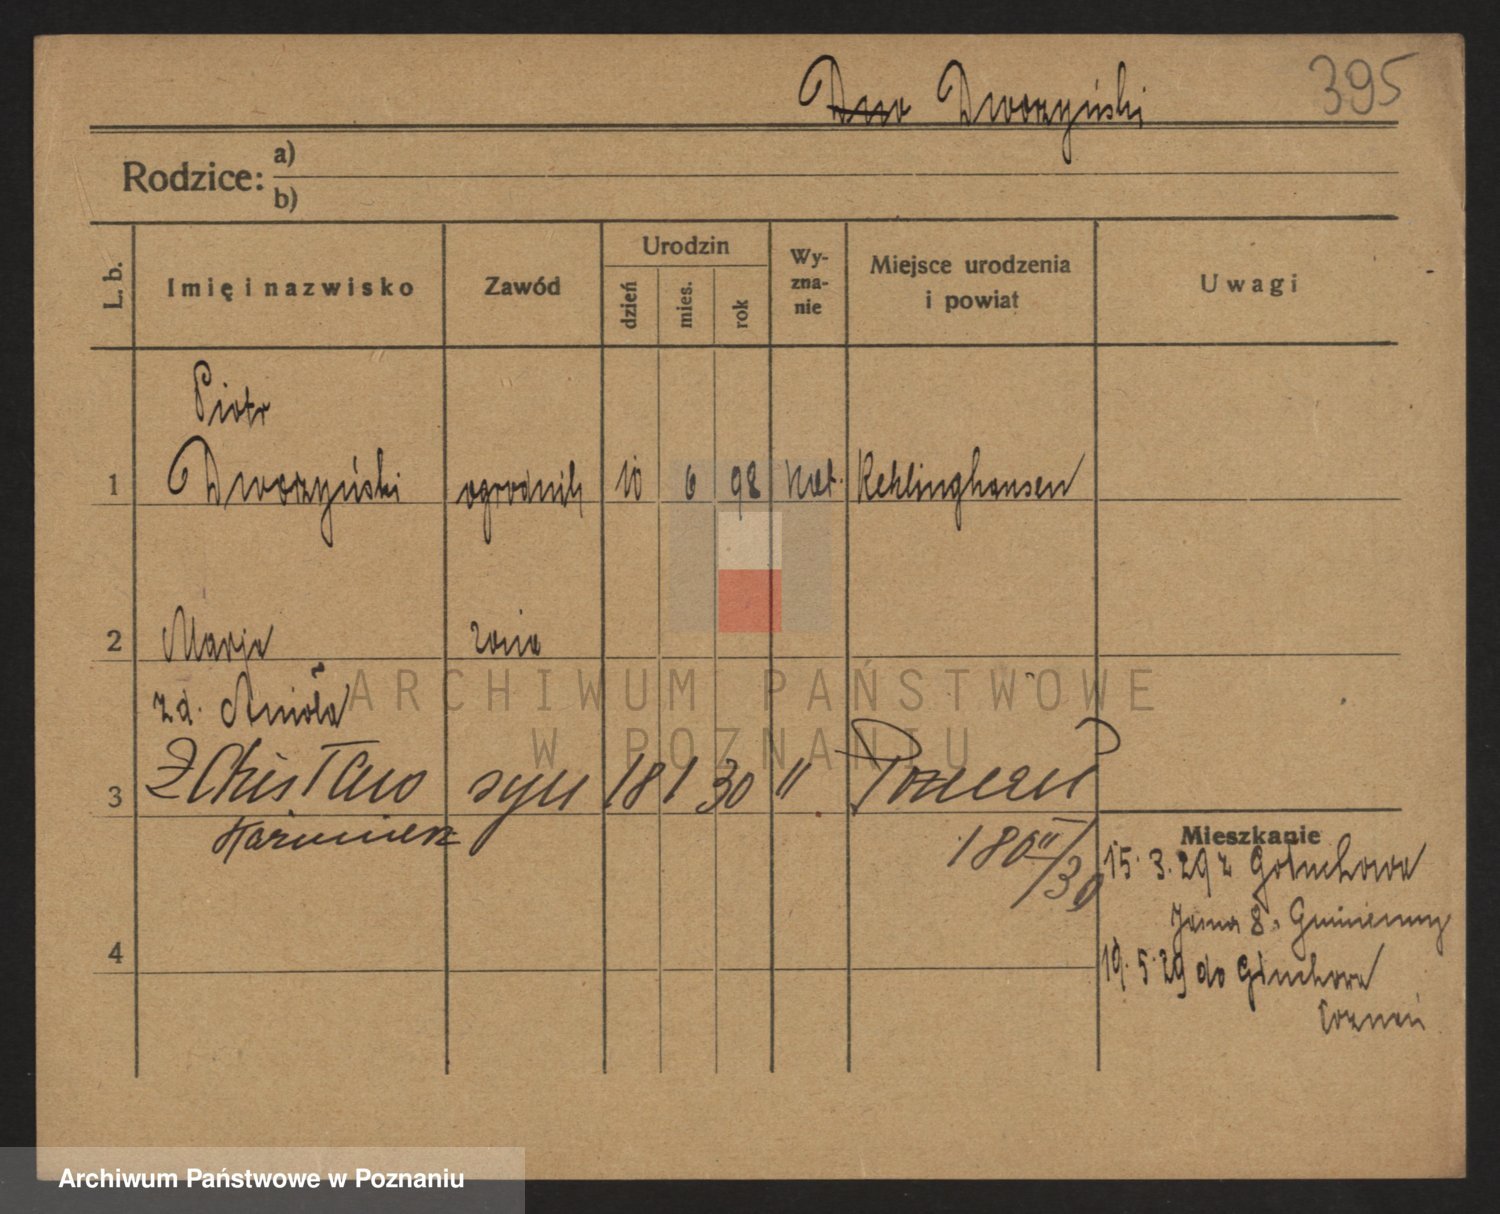 Dworzyński 395
Rodzice: a)
b)
L. b. Imię i nazwisko Zawód Urodzin dzień mies. rok Wy-zna-nie Miejsce urodzenia i powiat Uwagi
Piotr
1 Dworzyński ogrodnik 10 6 98 kat. Reklinghausen
2 Marja żona
zd. Anioła
ARCHIWUM PAŃSTWOWE
W POZNANIU
3 syn 18 1 30 " Poznań
Kazimierz
Mieszkanie
15. 3. 29 z Gołuchowa
4
19. 5. 29 do
Poznań
Archiwum Państwowe w Poznaniu